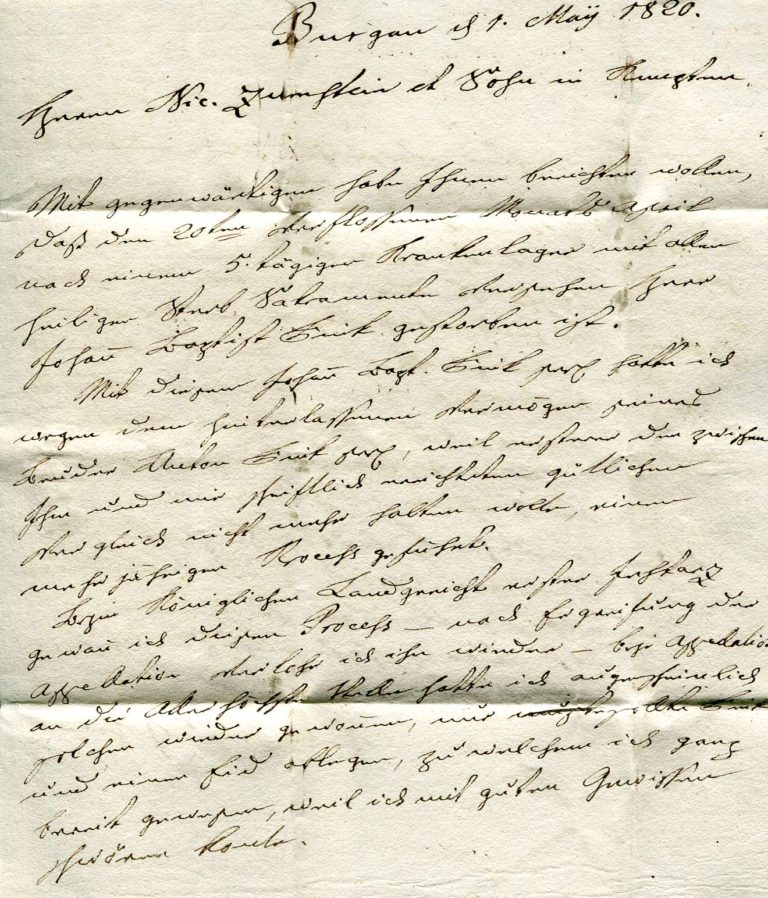 Burgau d 1. Maÿ 1820.
Herrn Nic. Zumstein et Söhn in Kempten.
Mit gegenwärtigen habe Ihnen berichten wollen,
daß den 20ten verflossenen Monats April
nach einem 5. tägigen Krankenlager mit allen
heiligen Sterb Sakramenten versehen Herr
Johañ Baptist gestorben ist.
Mit diesem Johañ Bapt. hatte ich
wegen dem hinterlassenen Vermögen seines
Bruder Anton weil ersterer den zwischen
Ihm und mir schriftlich errichteten gütlichen
Vergleich nicht mehr halten wolte, einen
mehr jährigen Process geführt.
Beym Königlichen Landgericht erster Instanz
gewañ ich diesen Process – nach Ergreifung der
Appellation verlohr ich ihn wieder – bey Appellation
an die Allerhöchste Stelle hatte ich augenscheinlich
solchen wieder gewonnen, nur
und einen Eid ablegen, zu welchem ich ganz
bereit gewesen, weil ich mit guten Gewissen
schwören konte.